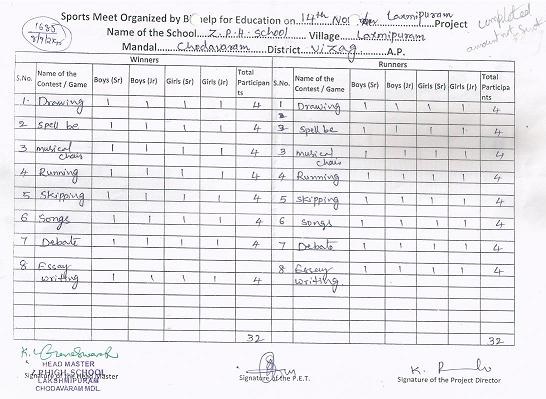 Sports Meet Organized by B help for Education on 14th Nov Laxmipuram Project
completed
1685
Name of the School Z.P.H. School Village Laxmipuram
Mandal Chodavaram District Vizag A.P.
Winners Runners
S.No. Name of the Contest / Game Boys (Sr) Boys (Jr) Girls (Sr) Girls (Jr) Total Participants S.No. Name of the Contest / Game Boys (Sr) Boys (Jr) Girls (Sr) Girls (Jr) Total Participants
1. Drawing 1 1 1 1 4 1 Drawing 1 1 1 1 4
2 Spell be 1 1 1 1 4 2 Spell be 1 1 1 1 4
3 musical chair 1 1 1 1 4 3 musical chair 1 1 1 1 4
4 Running 1 1 1 1 4 4 Running 1 1 1 1 4
5 Skipping 1 1 1 1 4 5 Skipping 1 1 1 1 4
6 Songs 1 1 1 1 4 6 Songs 1 1 1 1 4
7 Debate 1 1 1 1 4 7 Debate 1 1 1 1 4
8 Essay writing 1 1 1 1 4 8 Essay writing 1 1 1 1 4
32 32
HEAD MASTER
Z.P.HIGH SCHOOL
Signature of the Head Master Signature of the P.E.T. Signature of the Project Director
LAKSHMIPURAM
CHODAVARAM MDL.